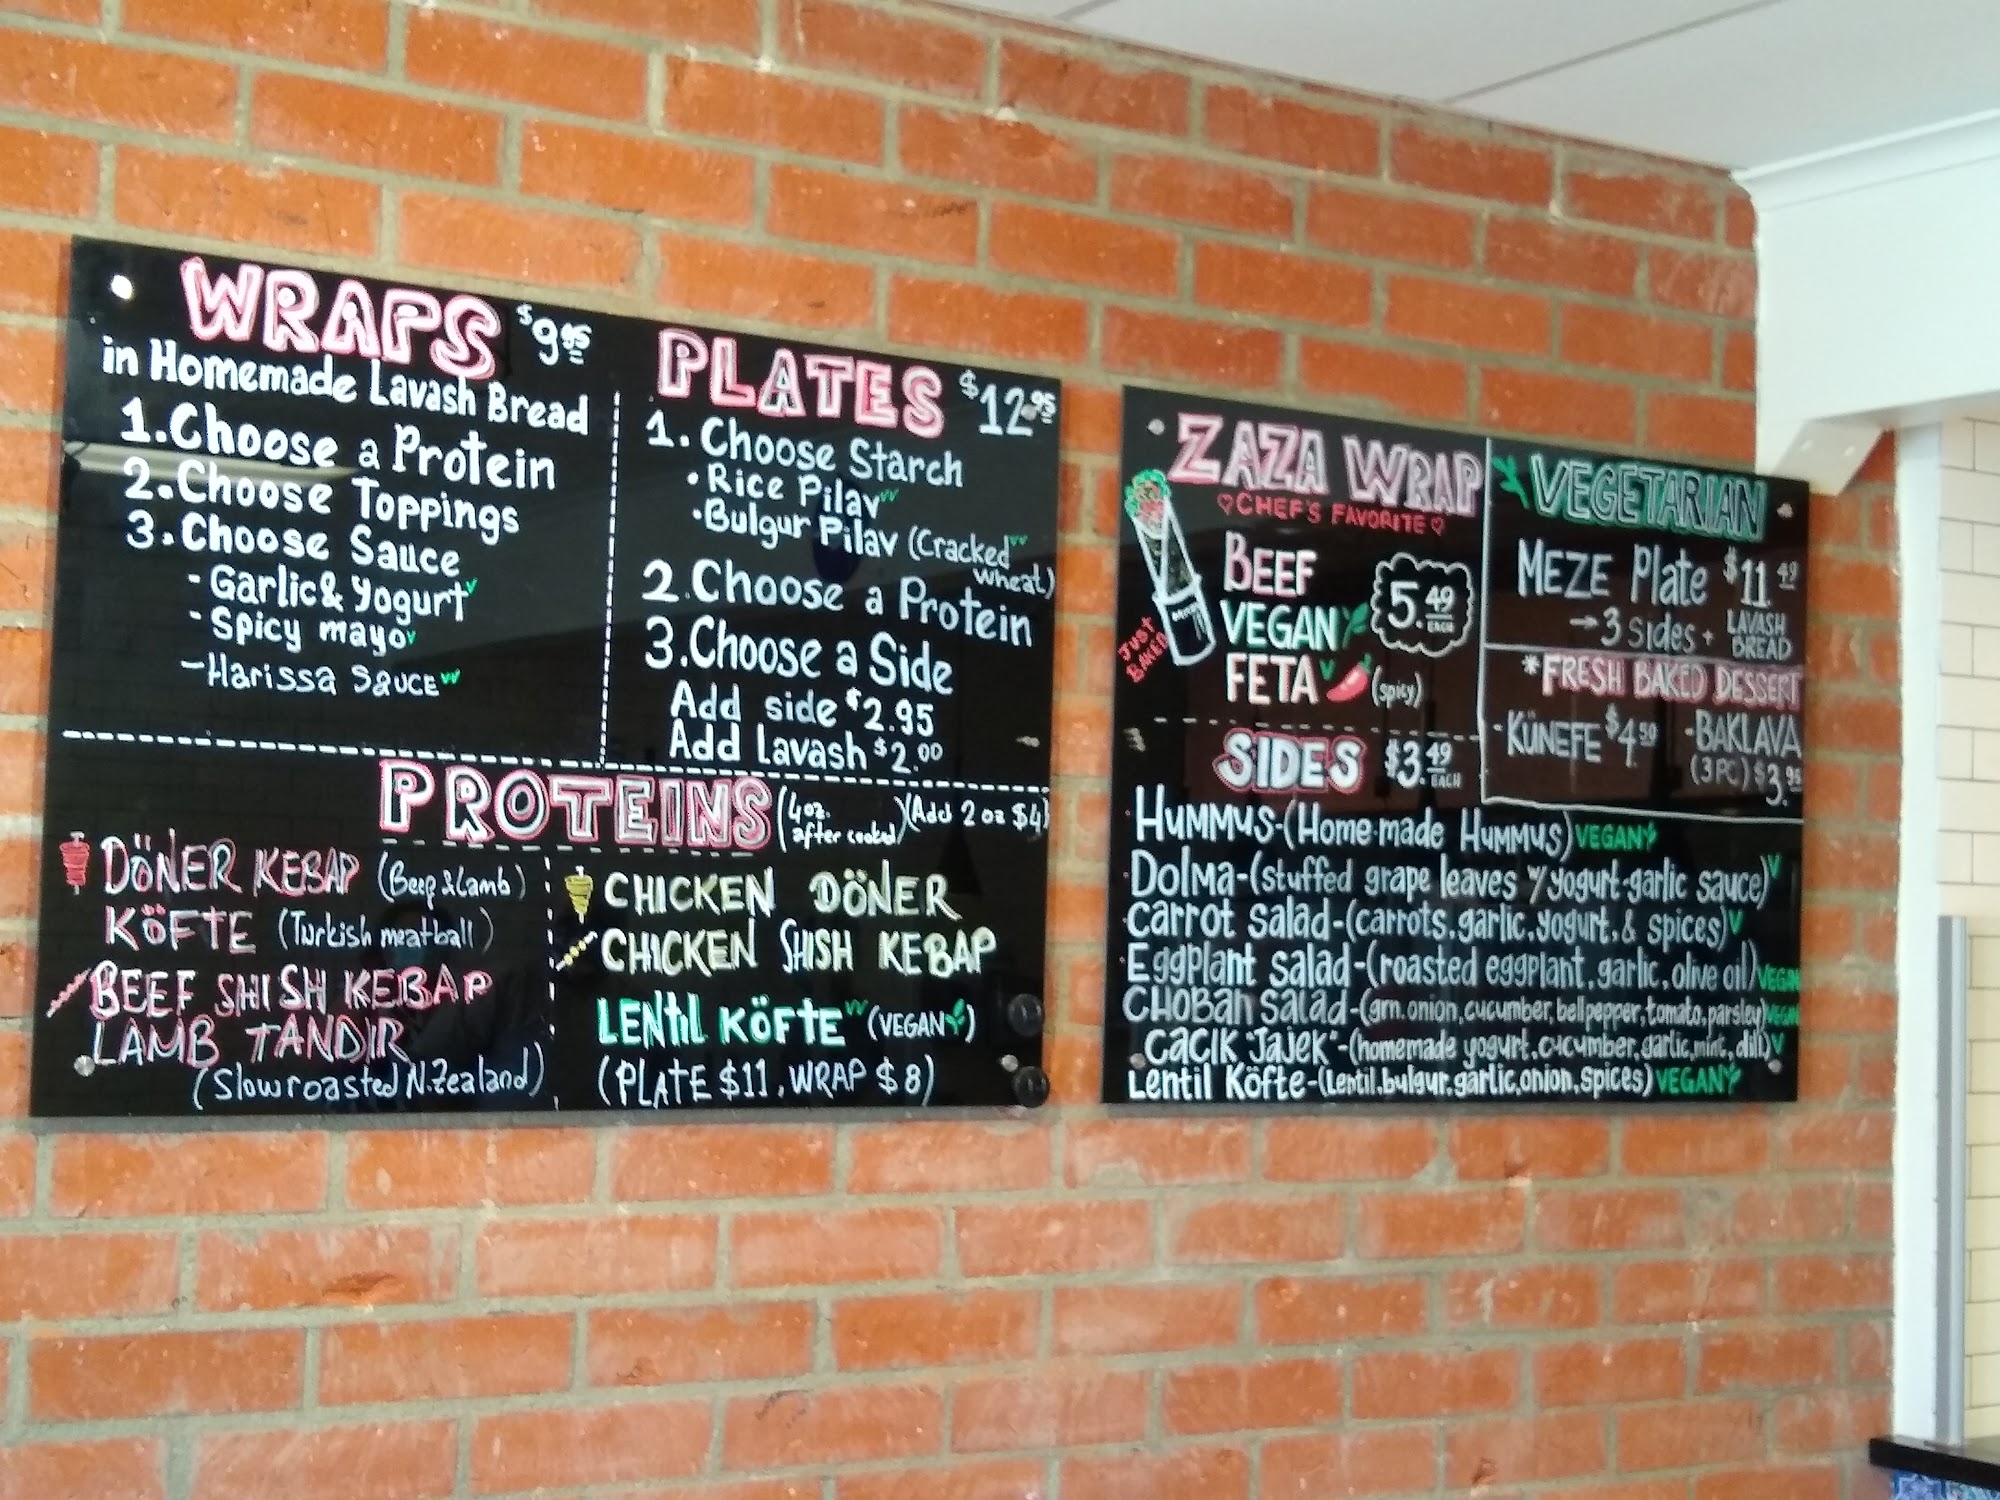 WRAPS $9.95
in Homemade Lavash Bread
1. Choose a Protein
2. Choose Toppings
3. Choose Sauce
- Garlic & Yogurt v
- Spicy mayo v
- Harissa Sauce vv
PLATES $12.95
1. Choose Starch
• Rice Pilav vv
• Bulgur Pilav (Cracked vv
wheat)
2. Choose a Protein
3. Choose a Side
Add side $2.95
Add Lavash $2.00
PROTEINS (4oz. after cooked) (Add 2 oz $4)
DÖNER KEBAP (Beef & Lamb)
KÖFTE (Turkish meatball)
BEEF SHISH KEBAP
LAMB TANDIR
(Slow roasted N.Zealand)
CHICKEN DÖNER
CHICKEN SHISH KEBAP
LENTIL KÖFTE vv (VEGAN)
(PLATE $11, WRAP $8)
ZAZA WRAP
CHEF'S FAVORITE
JUST
BAKED
BEEF
VEGAN
FETA v (spicy)
5.49
EACH
VEGETARIAN
MEZE Plate $11.49
→ 3 sides + LAVASH
BREAD
* FRESH BAKED DESSERT
- KÜNEFE $4.50
- BAKLAVA
(3PC) $3.95
SIDES $3.49
EACH
Hummus - (Home-made Hummus) VEGAN
Dolma - (stuffed grape leaves w/ yogurt-garlic sauce) v
Carrot Salad - (carrots, garlic, yogurt, & spices) v
Eggplant Salad - (roasted eggplant, garlic, olive oil) VEGAN
CHOBAN SALAD - (grn.onion, cucumber, bellpepper, tomato, parsley) VEGAN
CACIK "Jajek" - (homemade yogurt, cucumber, garlic, mint, dill) v
Lentil Köfte - (Lentil, bulgur, garlic, onion, spices) VEGAN